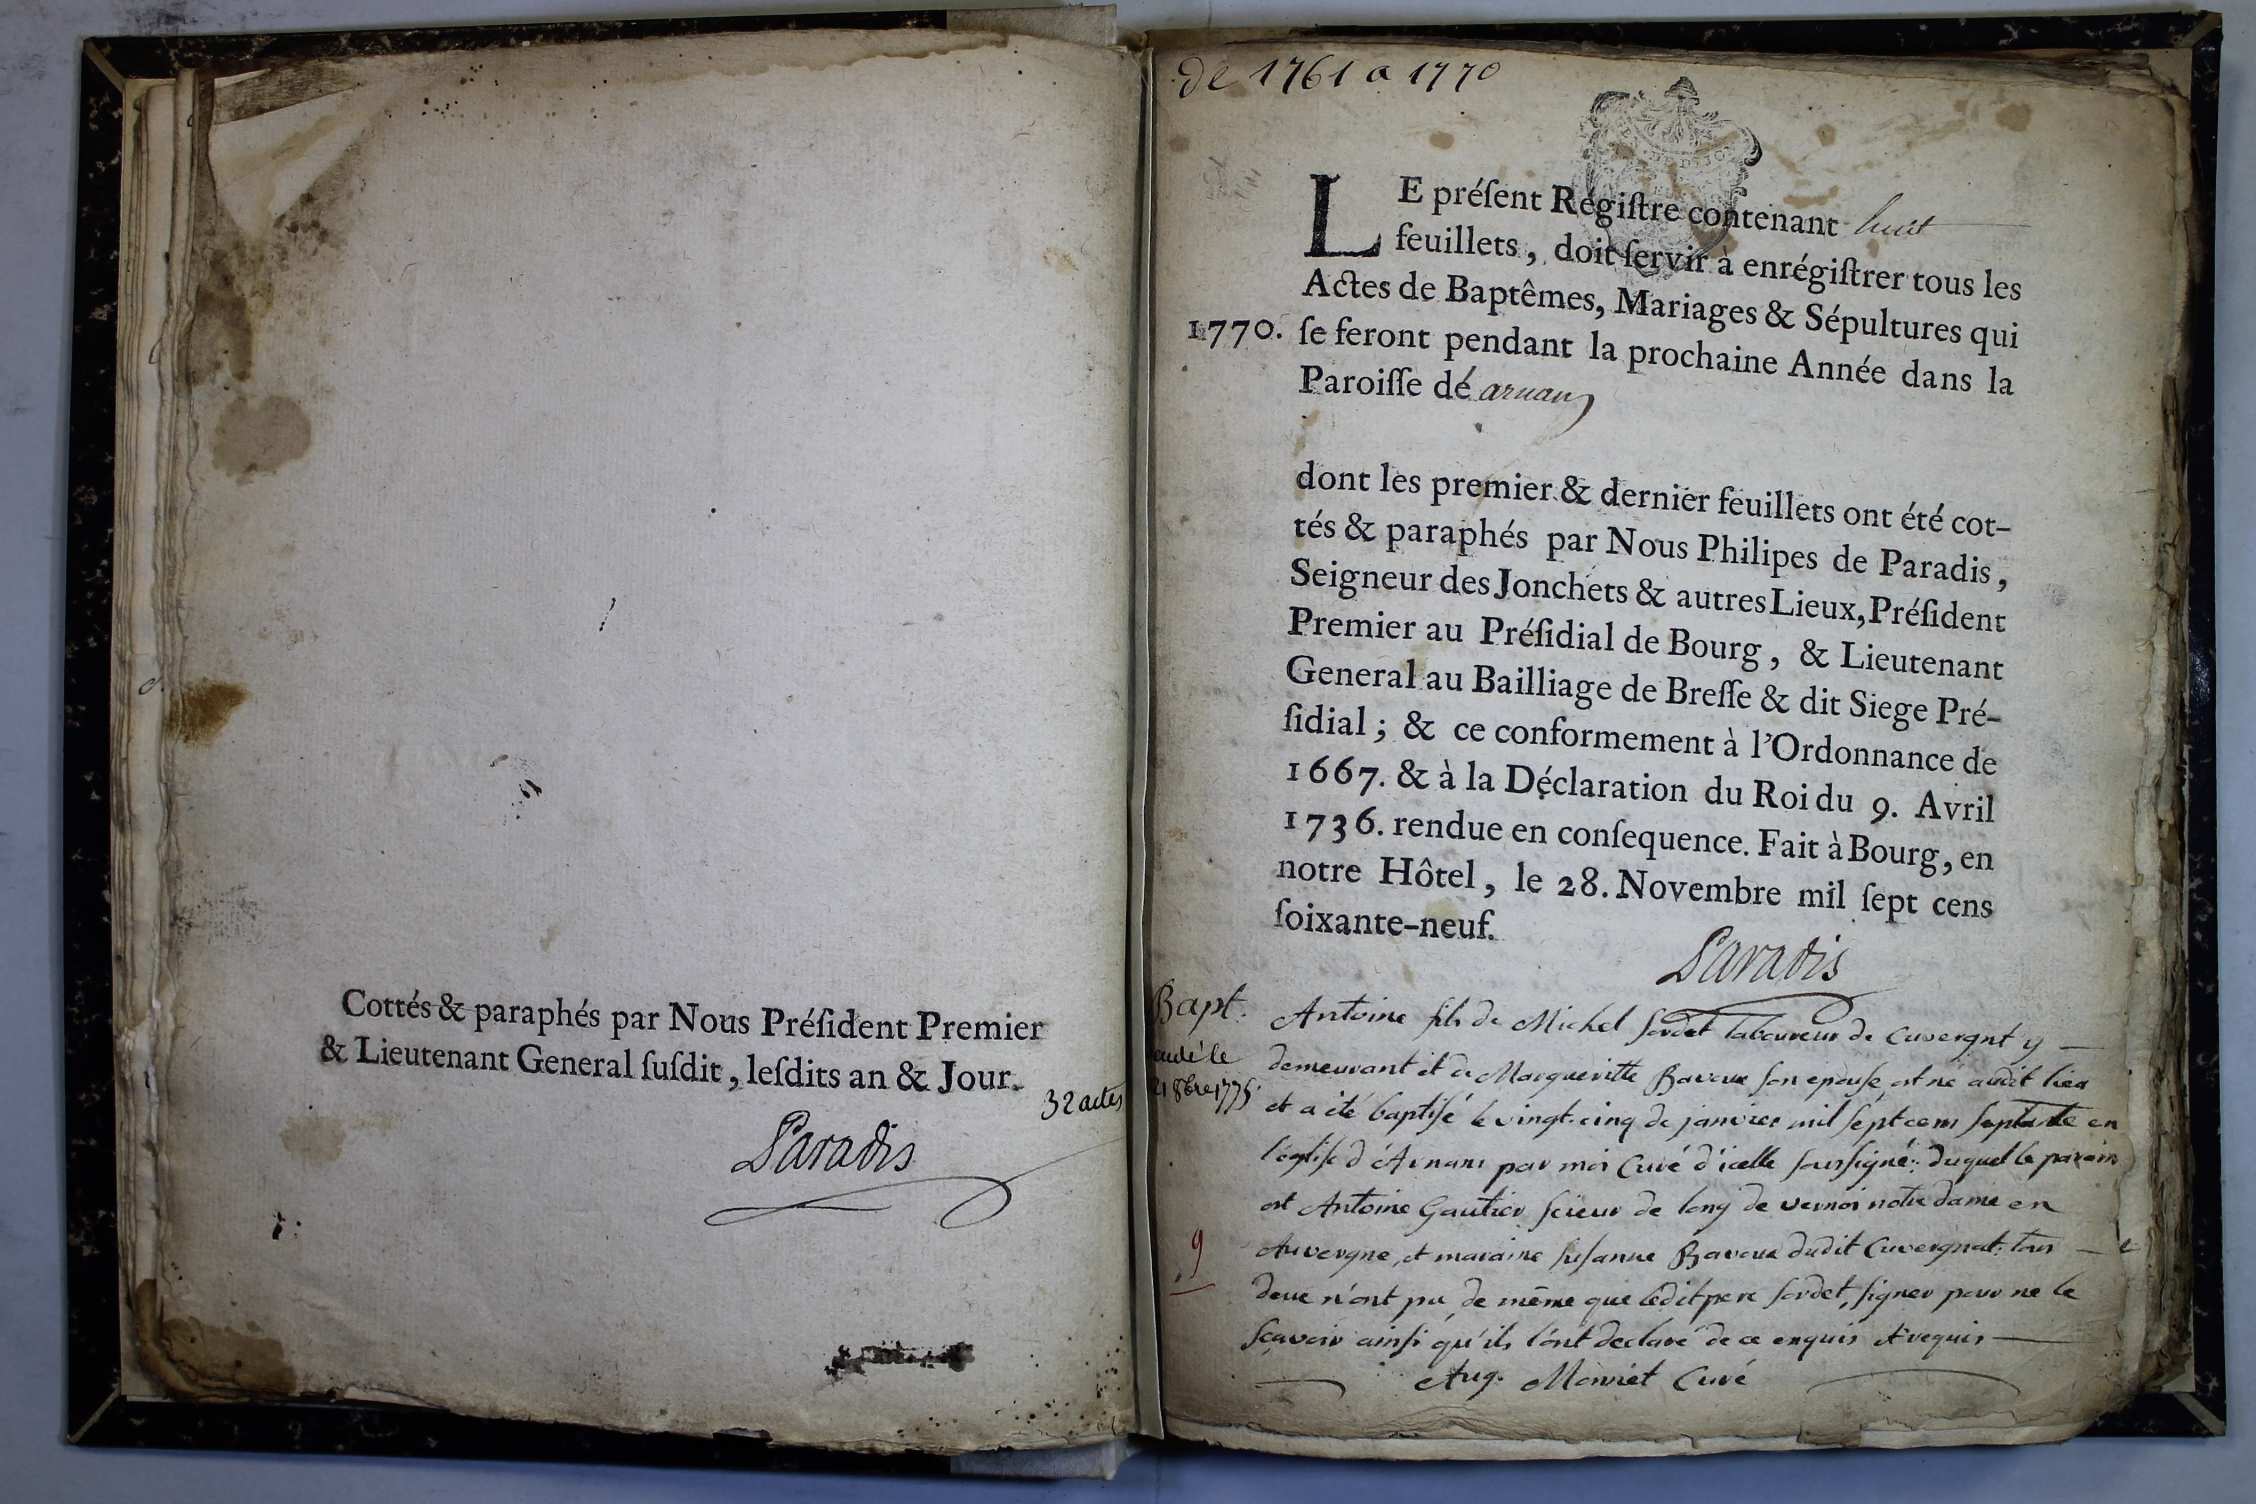 Cottés & paraphés par Nous Préſident Premier
& Lieutenant General ſuſdit, leſdits an & Jour.
32 actes
Paradis
de 1761 a 1770
LE préſent Régiſtre contenant huit
feuillets, doit ſervir à enrégiſtrer tous les
Actes de Baptêmes, Mariages & Sépultures qui
1770. ſe feront pendant la prochaine Année dans la
Paroiſſe dé arnans
dont les premier & dernier feuillets ont été cot-
tés & paraphés par Nous Philipes de Paradis,
Seigneur des Jonchets & autres Lieux, Préſident
Premier au Préſidial de Bourg, & Lieutenant
General au Bailliage de Breſſe & dit Siege Pré-
ſidial; & ce conformement à l'Ordonnance de
1667. & à la Déclaration du Roi du 9. Avril
1736. rendue en conſequence. Fait à Bourg, en
notre Hôtel, le 28. Novembre mil ſept cens
ſoixante-neuf.
Paradis
Bapt.
le
21 8bre 1775
9
Antoine fils de Michel sordet laboureur de Cuvergnt y
demeurant et de Margueritte Baveux son epouse est né audit lieu
et a été baptisé le vingt-cinq de janvier mil sept cem septante en
l'église d'Arnans par moi Curé d'icelle soussigné: duquel le parain
est Antoine Gautier scieur de long de vernoi notre dame en
Auvergne, et maraine susanne Baveux dudit Cuvergnat: tous
deux n'ont pu de même que ledit pere sordet, signer pour ne le
sçavoir ainsi qu'ils l'ont declaré de ce enquis et requis
Aug. Curé